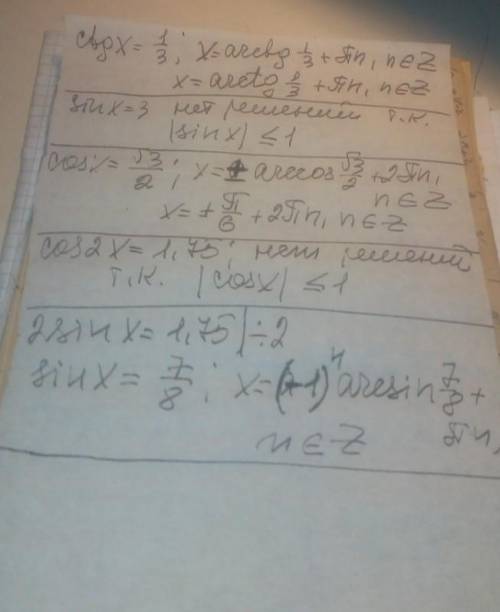 ctgx = 1/3; x = arcctg 1/3 + πn, n∈Z
x = arcctg 1/3 + πn, n∈Z
sinx = 3 нет решений т.к.
|sinx| ≤ 1
cosx = √3/2; x = ± arccos √3/2 + 2πn,
n∈Z
x = ± π/6 + 2πn, n∈Z
cos2x = 1,75; нет решений
т.к. |cosx| ≤ 1
2sinx = 1,75 | ÷2
sinx = 7/8; x = (-1)ⁿ arcsin 7/8 +
πn,
n∈Z